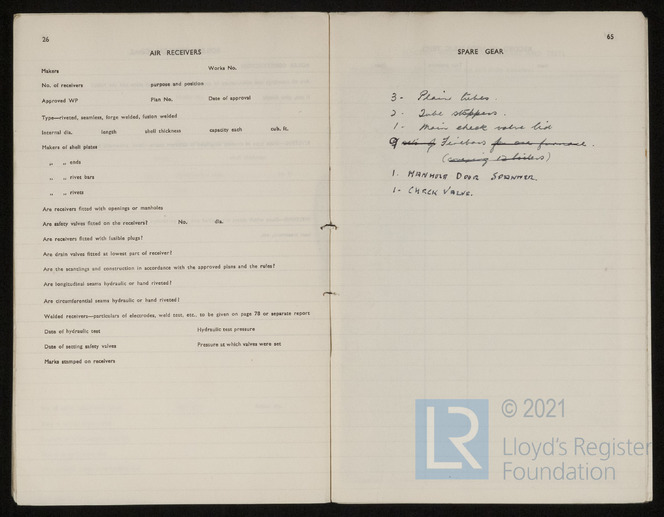 26
AIR RECEIVERS
Makers Works No.
No. of receivers purpose and position
Approved WP Plan No. Date of approval
Type—riveted, seamless, forge welded, fusion welded
Internal dia. length shell thickness capacity each cub. ft.
Makers of shell plates
„ „ ends
„ „ rivet bars
„ „ rivets
Are receivers fitted with openings or manholes
Are safety valves fitted on the receivers? No. dia.
Are receivers fitted with fusible plugs?
Are drain valves fitted at lowest part of receiver?
Are the scantlings and construction in accordance with the approved plans and the rules?
Are longitudinal seams hydraulic or hand riveted?
Are circumferential seams hydraulic or hand riveted?
Welded receivers—particulars of electrodes, weld test, etc., to be given on page 78 or separate report
Date of hydraulic test Hydraulic test pressure
Date of setting safety valves Pressure at which valves were set
Marks stamped on receivers
65
SPARE GEAR
3 - Plain tubes.
2 - Tube stoppers.
1 - Main check valve lid
Firebars for one furnace.
1. MANHOLE DOOR SPANNER.
1 - CHECK VALVE.
LR © 2021
Lloyd's Register
Foundation